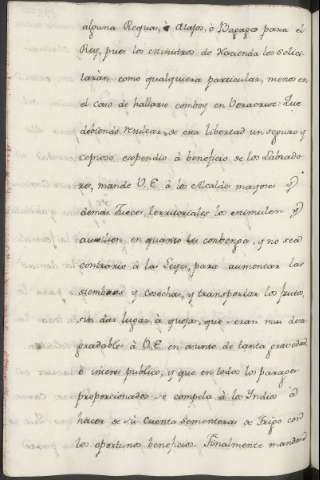 alguna Requa, ò Atajos, ò Bagages para el
Rey, pues los Ministros de Hacienda los solici-
taràn como qualquiera particular, menos en
el caso de hallarse comboy en Veracruz: Que
debiendo resultar de esta libertad un seguro y
copioso expendio à beneficio de los Labrado-
res, mande V.E. à los Alcaldes mayores y
demas Jueces territoriales los estimulen y
auxilien en quanto les convenga, y no sea
contrario à la Leyes, para aumentar las
siembras y cosechas, y transportar los frutos,
sin dar lugar à quejas, que seran mui desa
gradables à V.E. en asunto de tanta gravedad
è interes publico, y que en todos los parages
proporcionados se compela à los Yndios à
hacer de su cuenta sementeras de Trigo con
los oportunos beneficios. Finalmente mandarà